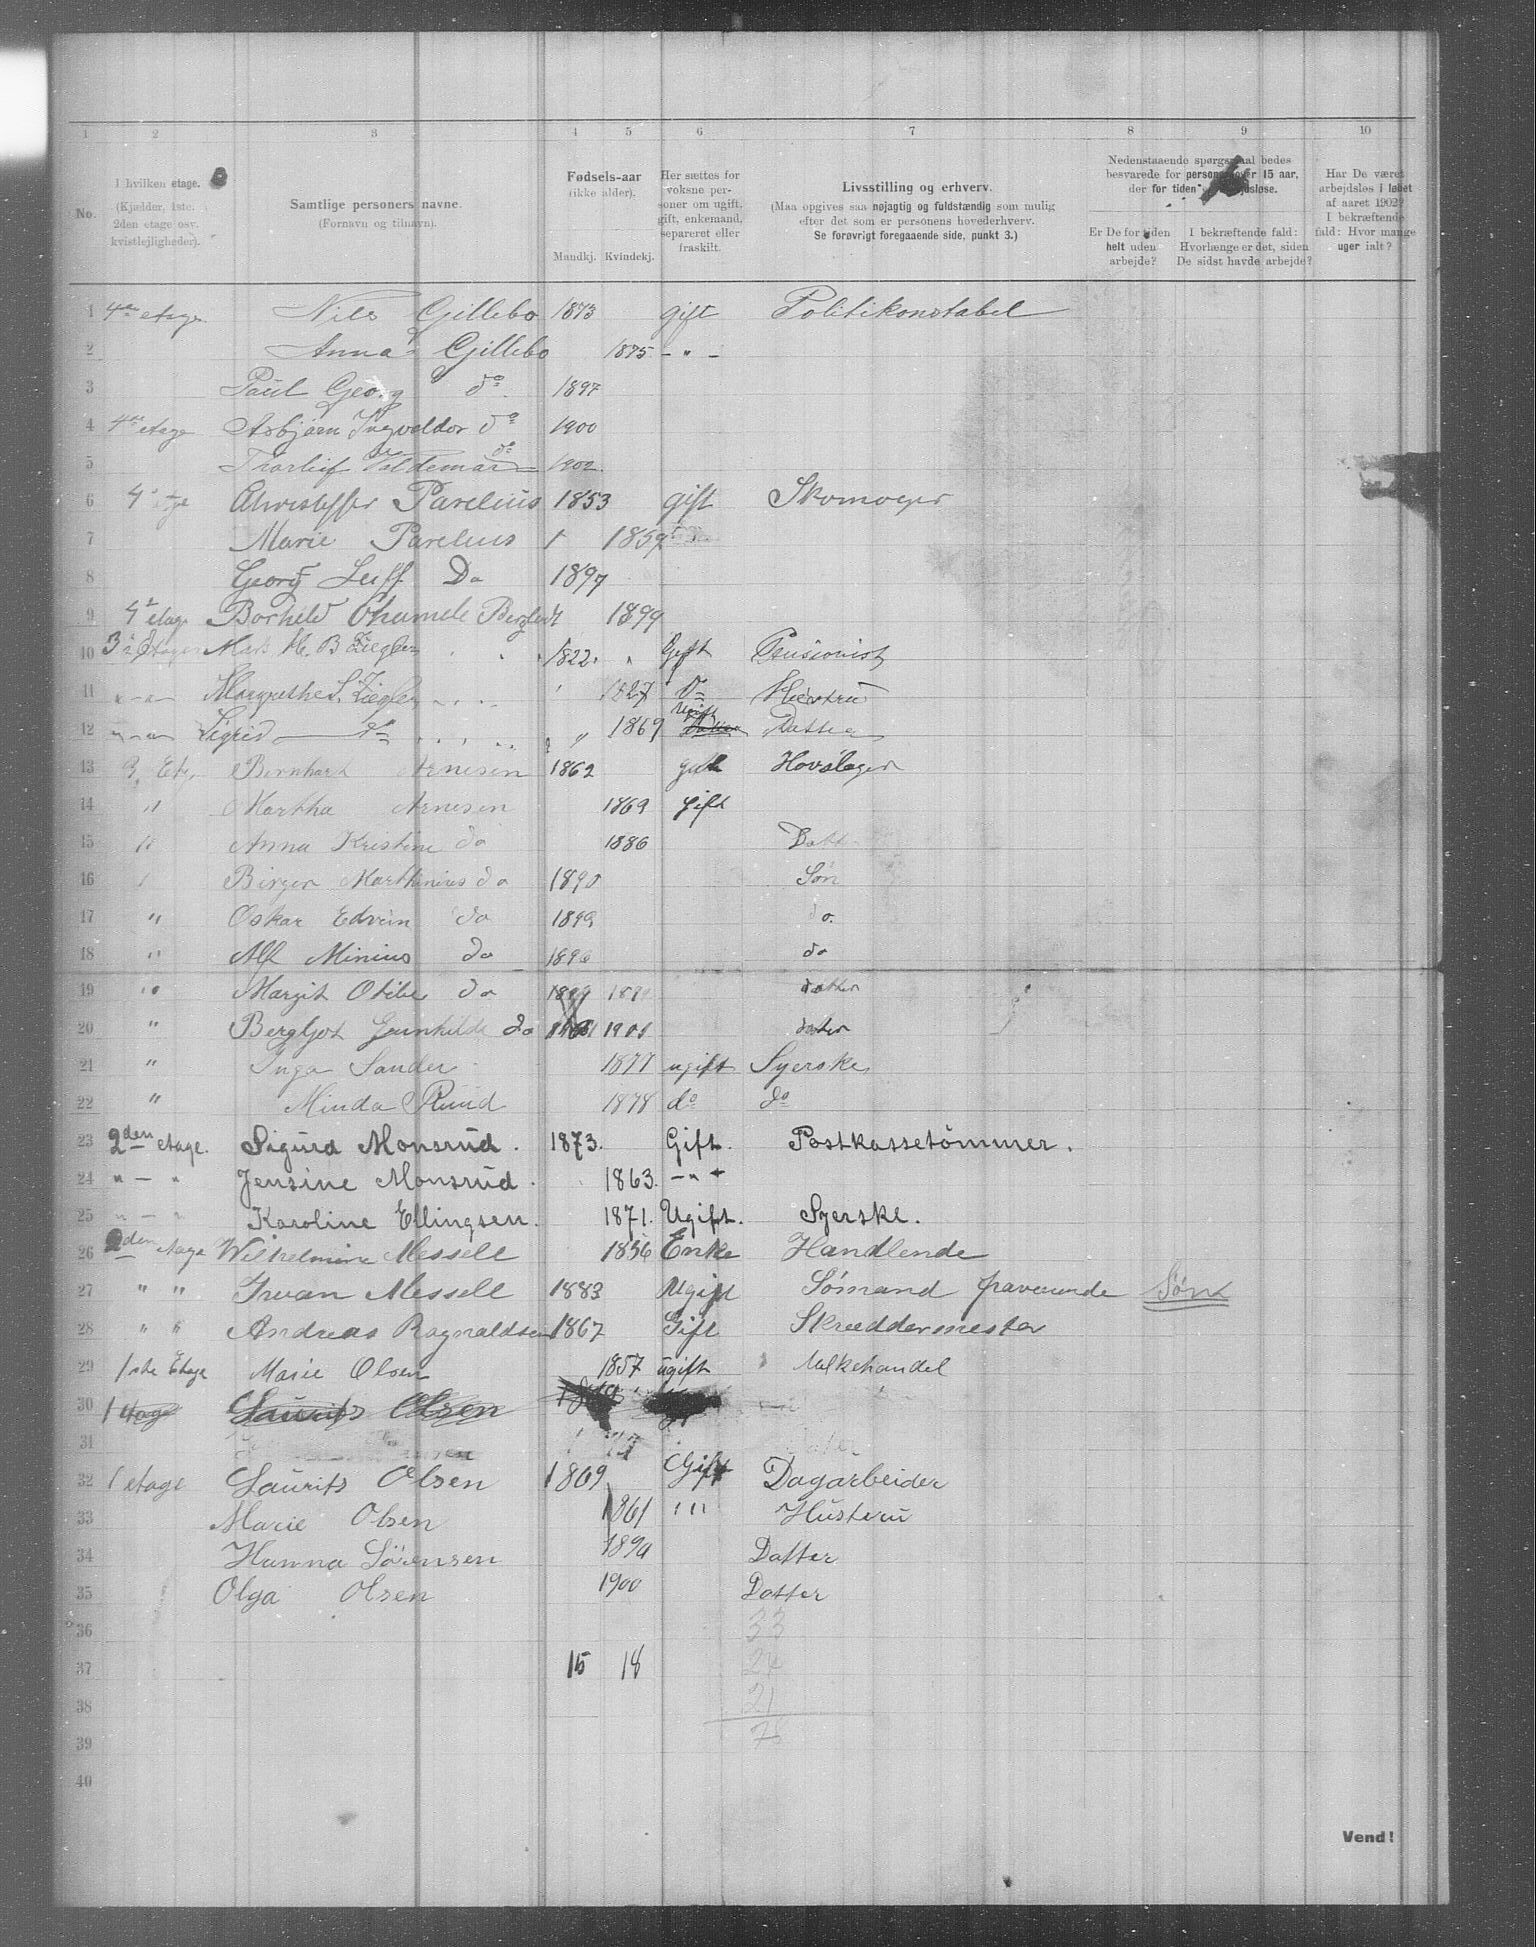 1 2 3 4 5 6 7 8 9 10
No.
I hvilken etage.
(Kjælder, 1ste.
2den etage osv.
kvistlejligheder).
Samtlige personers navne.
(Fornavn og tilnavn).
Fødsels-aar
(ikke alder).
Mandkj. Kvindekj.
Her sættes for
voksne per-
soner om ugift,
gift, enkemand,
separeret eller
fraskilt.
Livsstilling og erhverv.
(Maa opgives saa nøjagtig og fuldstændig som mulig
efter det som er personens hovederhverv.
Se forøvrigt foregaaende side, punkt 3.)
Nedenstaaende spørgsmaal bedes
besvarede for personer over 15 aar,
der for tiden er arbejdsløse.
Er De for tiden
helt uden
arbejde?
I bekræftende fald:
Hvorlænge er det, siden
De sidst havde arbejde?
Har De været
arbejdsløs i løbet
af aaret 1902?
I bekræftende
fald: Hvor mange
uger ialt?
1 4de etage Nils Gillebo 1873 gift Politikonstabel
2 Anna Gillebo 1875. - " -
3 Paul Georg do. 1897
4 4de etage Asbjørn Ingveldor do 1900
5 Valdemar do 1902
6 4 Parelius 1853 gift Skomager
7 Marie Parelius 1859
8 Georg Leiff Do 1897
9 4 etage Borhild 1899
10 3 Etage B Ziegler 1822 " Gift Pensionist
11 " - " - Margrethe S. Ziegler 1827 Do Hustru
12 " - " - Sigrid do 1869 Ugift Datter
13 3 Etg. Bernhart Arnesen 1862 gift Hovslager
14 " Martha Arnesen 1869 gift
15 " Anna Kristine do 1886 Datt
16 Birger Marthinius do 1890 Søn
17 " Oskar Edvin do 1893 do.
18 " Alf Minius do 1896 do
19 " Margit Otilie do 1899 datter
20 " Bergljot Gunhilde do 1901 dater
21 " Inga Sander 1877 ugift Syerske
22 " Minda Ruud 1878 do do
23 2den etage. Sigurd Monsrud. 1873. Gift. Postkassetömmer.
24 " - " Jensine Monsrud. 1863. - " -
25 " - " Karoline Ellingsen. 1871. Ugift. Syerske.
26 2den etage Wilhelmine Messell 1856 Enke Handlende
27 " " Messell 1883 Ugift Sømand fraverende Søn
28 " " Andreas Ragnaldsen 1867 Gift Skræddermester
29 1ste Etage Marie Olsen 1857 ugift Melkehandel
30 1 etage Laurits Olsen
31
32 1 etage Laurits Olsen 1869 Gift Dagarbeider
33 Marie Olsen 1861 " " Husteru
34 Hanna Sörensen 1894 Datter
35 Olga Olsen 1900 Datter
36 33
37 15 18 24
38 21
39 78
40
Vend!